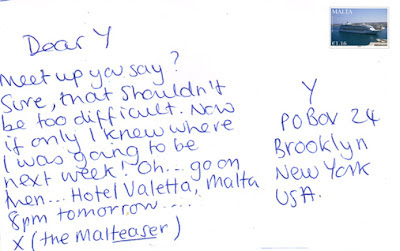 Dear Y
Meet up you say?
Sure, that shouldn't
be too difficult. Now
if only I knew where
I was going to be
next week! Oh... go on
then... Hotel Valetta, Malta
8pm tomorrow....
X (the Malteaser)
MALTA
€1.16
Y
PO Box 24
Brooklyn
New York
USA.